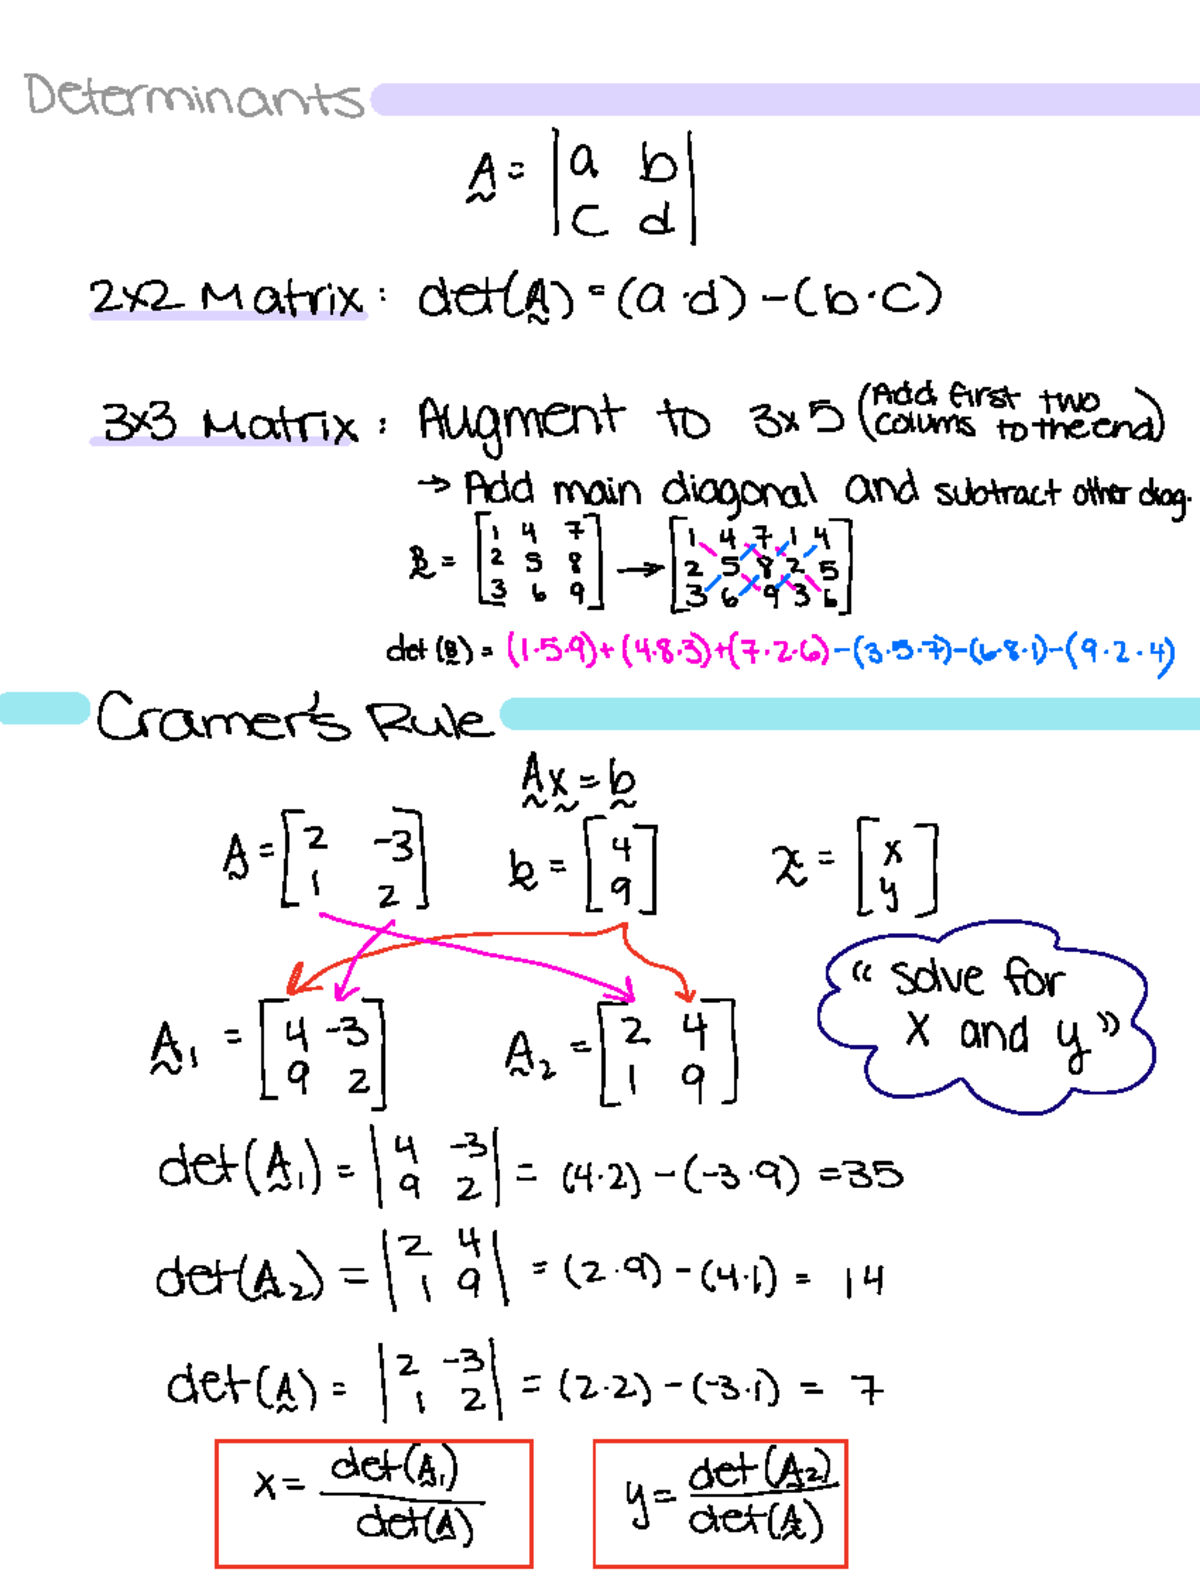 Determinants
A = |a b|
|c d|
2x2 Matrix: det(A) = (a·d) - (b·c)
3x3 Matrix: Augment to 3x5 (Add first two colums to the end)
→ Add main diagonal and subtract other diag.
B = [1 4 7] → [1 4 7 1 4]
[2 5 8] [2 5 8 2 5]
[3 6 9] [3 6 9 3 6]
det(B) = (1·5·9)+(4·8·3)+(7·2·6)-(3·5·7)-(6·8·1)-(9·2·4)
Cramer's Rule
Ax = b
A = [2 -3] b = [4] x = [x]
[1 2] [9] [y]
"solve for
x and y"
A1 = [4 -3] A2 = [2 4]
[9 2] [1 9]
det(A1) = |4 -3| = (4·2) - (-3·9) = 35
|9 2|
det(A2) = |2 4| = (2·9) - (4·1) = 14
|1 9|
det(A) = |2 -3| = (2·2) - (-3·1) = 7
|1 2|
x = det(A1) / det(A) y = det(A2) / det(A)